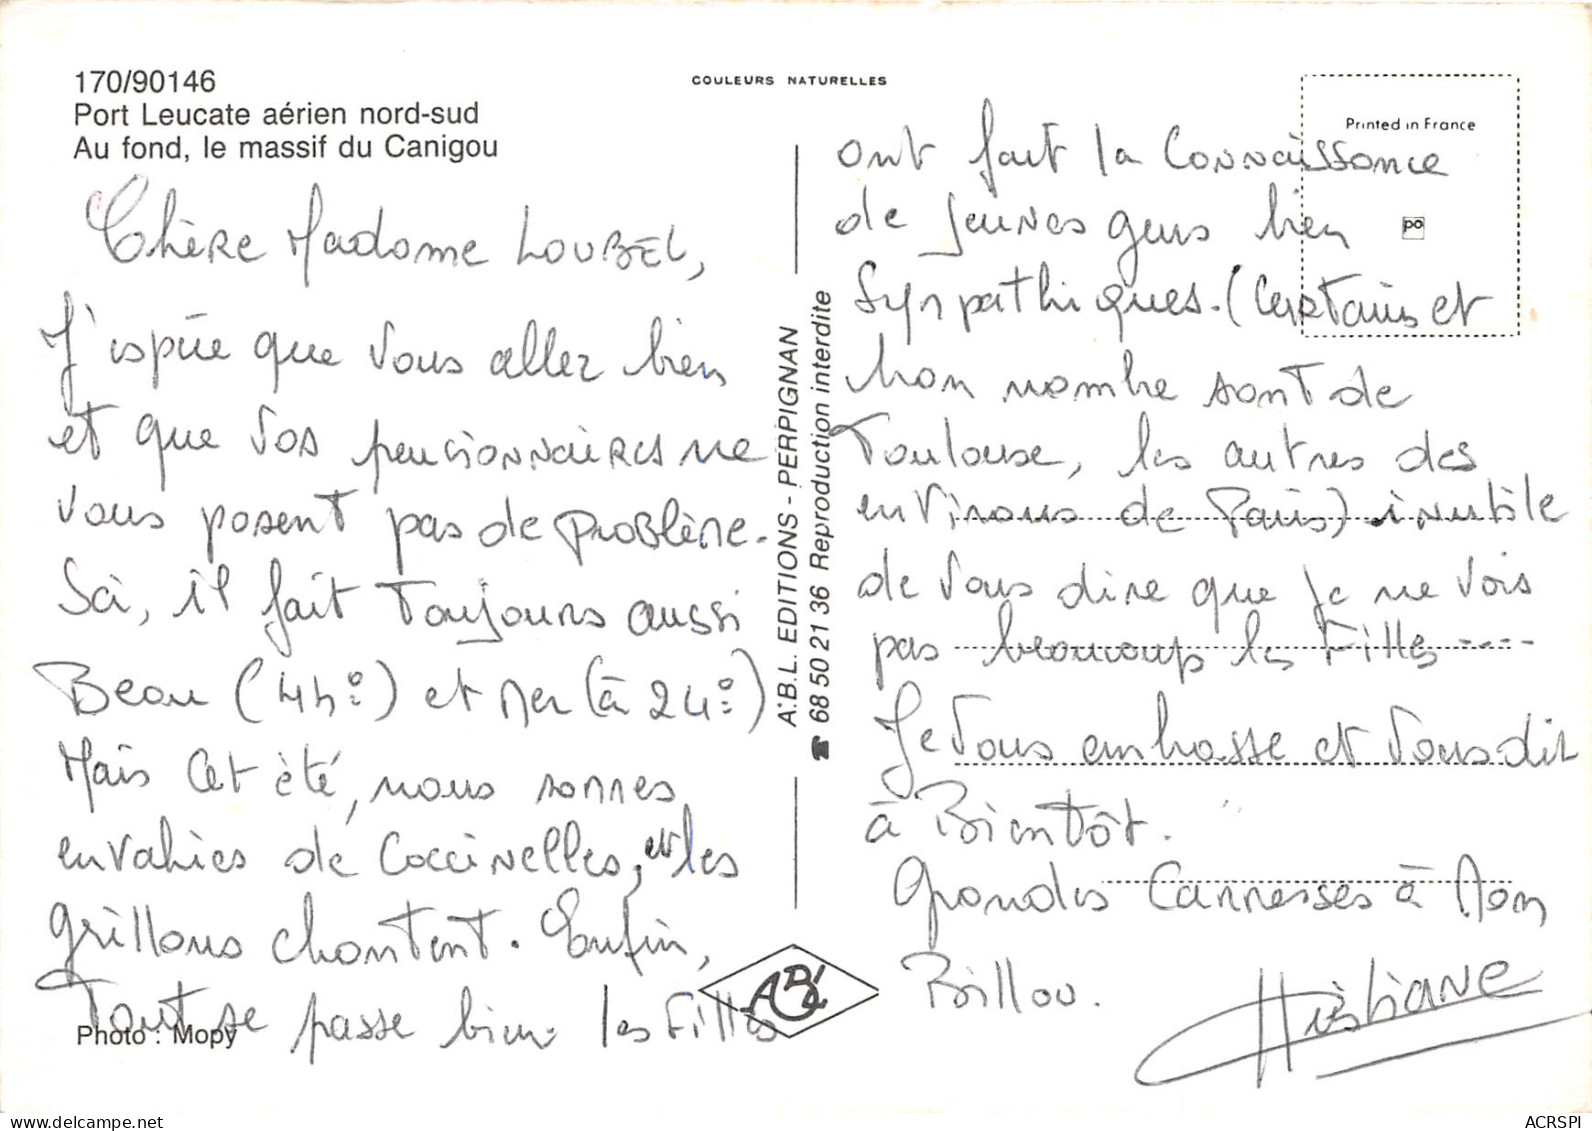 170/90146
Port Leucate aérien nord-sud
Au fond, le massif du Canigou
COULEURS NATURELLES
Printed in France
po
Chère Madame LOUBEL,
J'espère que vous allez bien
et que vos pensionnaires ne
vous posent pas de problème.
Ici, il fait toujours aussi
Beau (44h°) et Mer (à 24°)
Mais cet été, nous sommes
envahies de coccinelles, et les
grillons chantent. Enfin,
Tout se passe bien. les Filles
Photo : Mopy
A.B.L. EDITIONS - PERPIGNAN
☎ 68 50 21 36 Reproduction interdite
ABL
ont fait la connaissance
de jeunes gens bien
sympathiques. (Certains et
bon nombre sont de
Toulouse, les autres des
environs de Paris) inutile
de vous dire que je ne vois
pas beaucoup les Filles ----
Je vous embrasse et vous dit
à Bientôt.
Grandes Carresses à Mon
Billou.
Christiane
ACRSPI